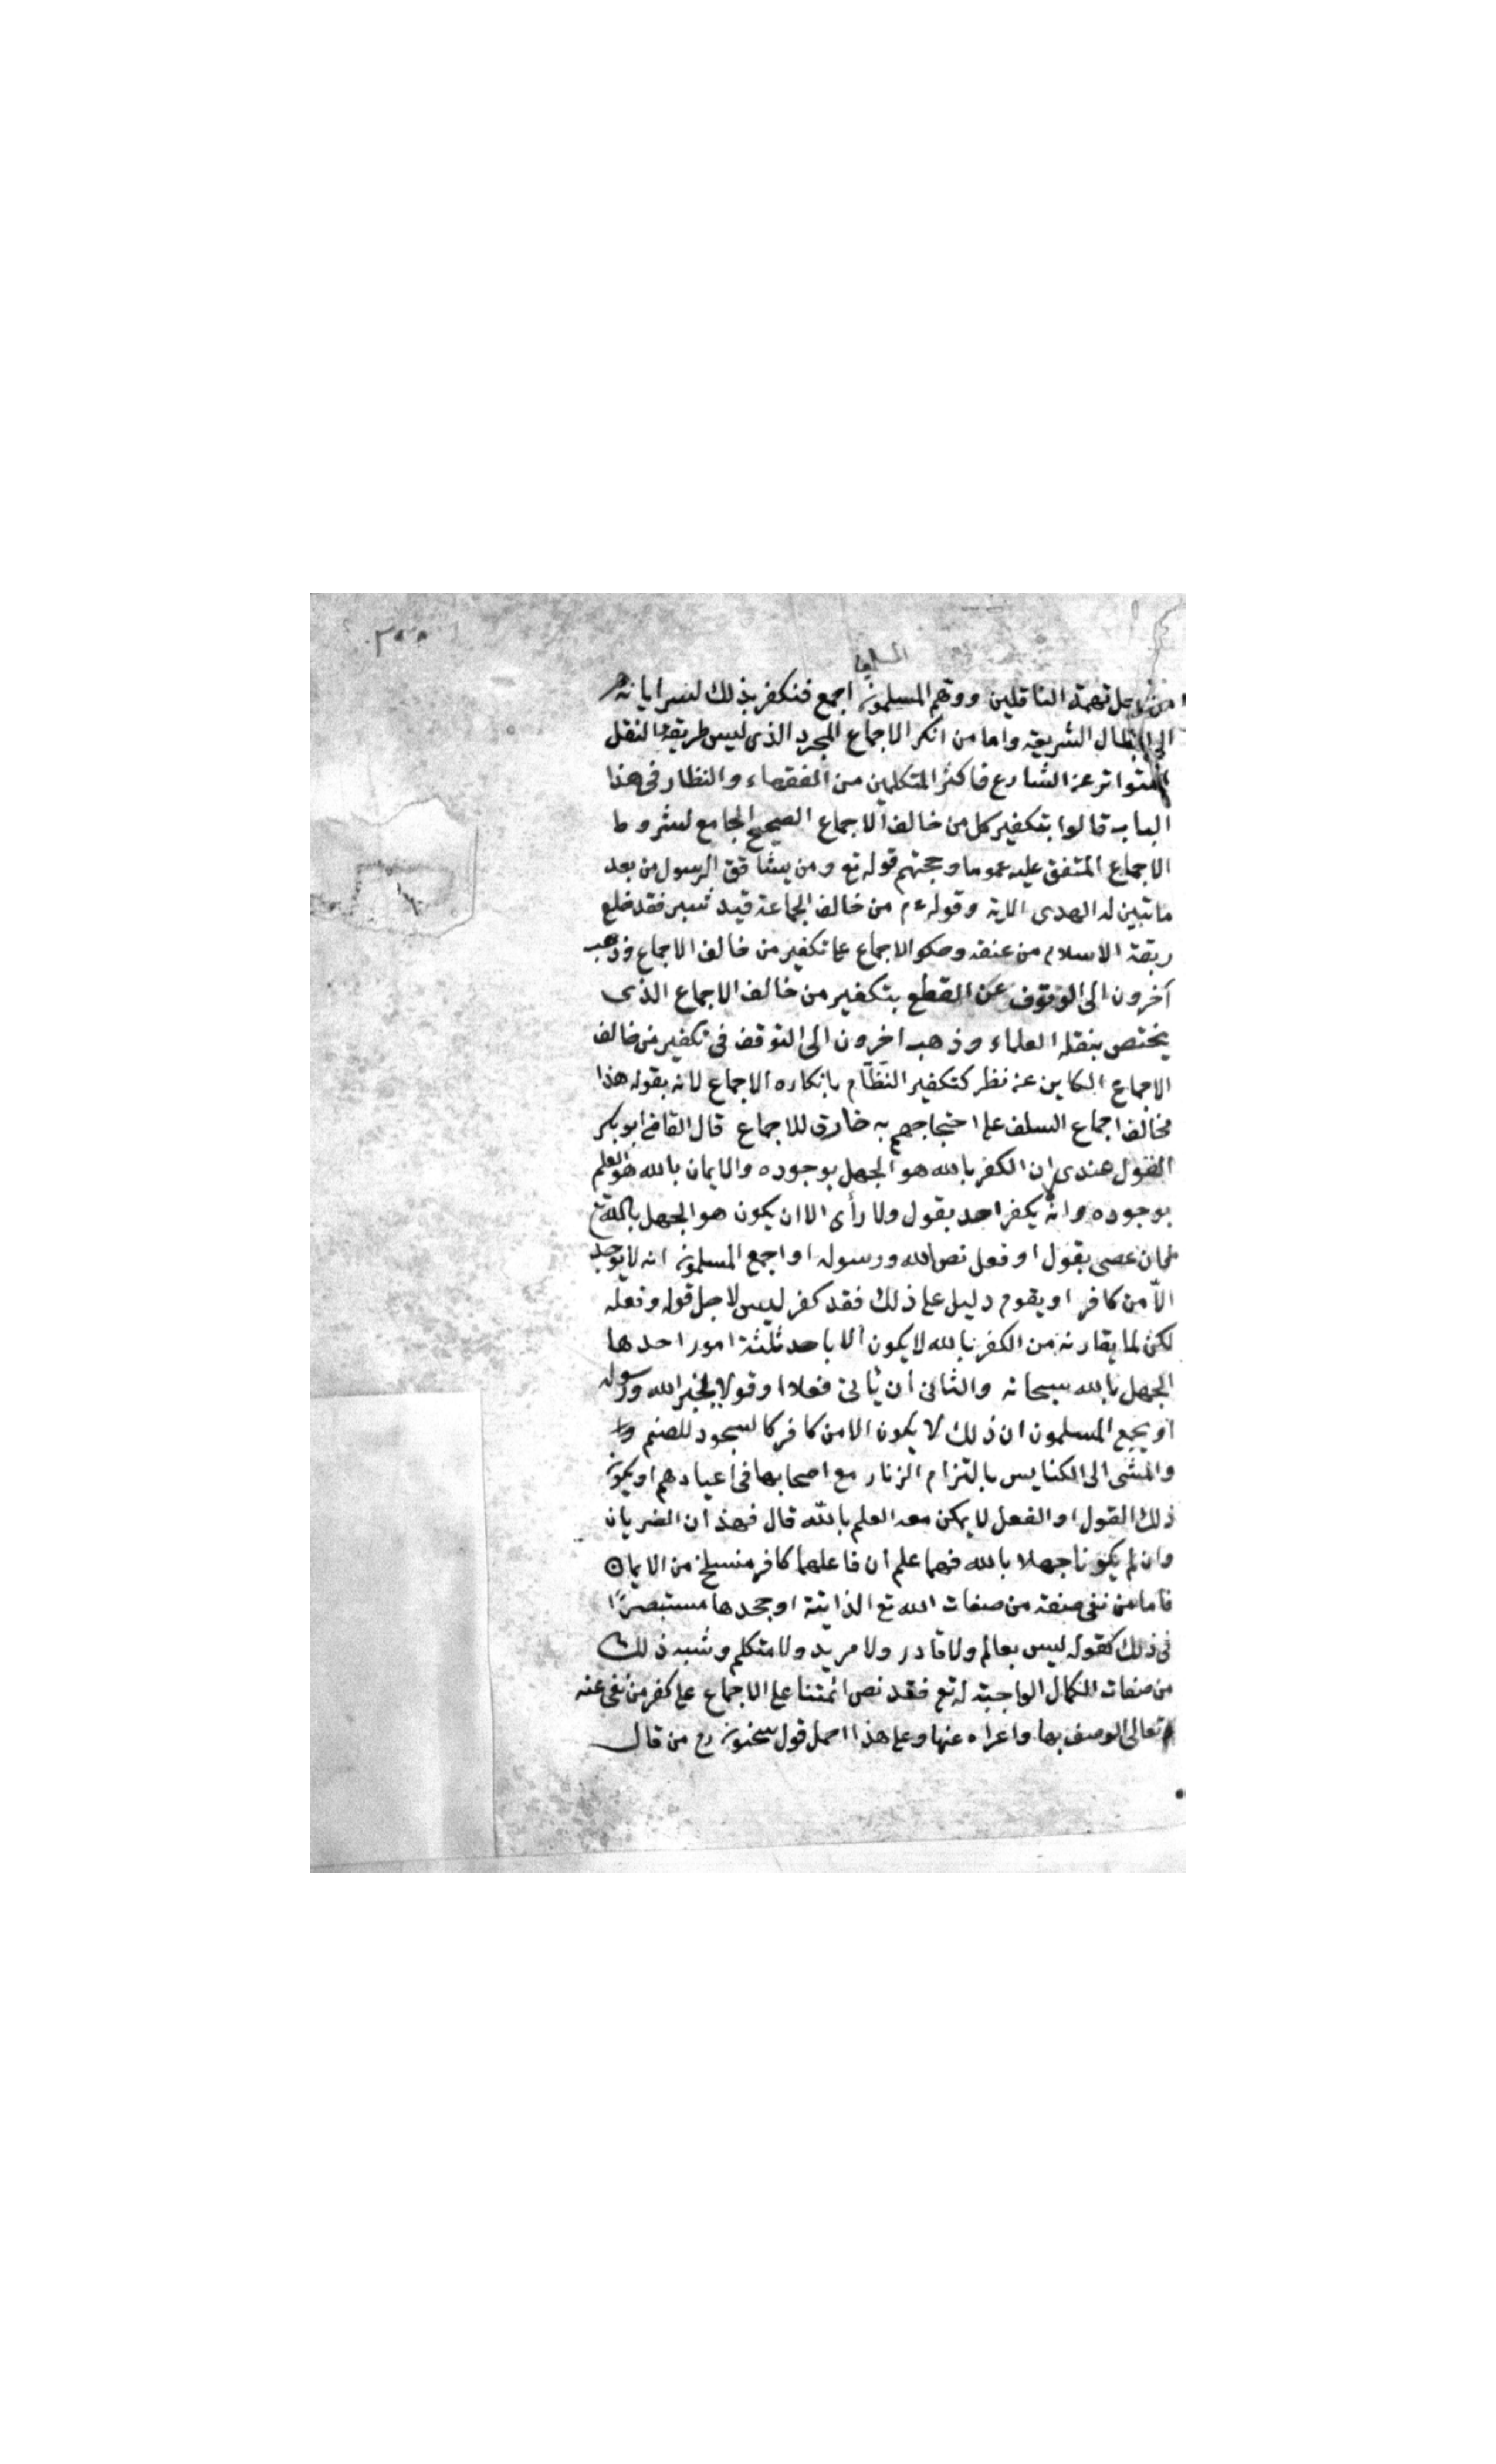 المسلمين
من اجل تهمة الناقلين ووهم المسلمون اجمع فنكفر بذلك لسرايانه
الى ابطال الشريعة واما من انكر الاجماع المجرد الذى ليس طريقه النقل
المتواتر عن الشارع فاكثر المتكلمين من الفقهاء والنظار فى هذا
الباب قالوا بتكفير كل من خالف الاجماع الصحيح الجامع لشروط
الاجماع المتفق عليه عموما وحجتهم قوله تع ومن يشاقق الرسول من بعد
ما تبين له الهدى الاية وقوله عم من خالف الجماعة قيد شبر فقد خلع
ربقة الاسلام من عنقه وحكوا الاجماع على تكفير من خالف الاجماع وذهب
آخرون الى الوقوف عن القطع بتكفير من خالف الاجماع الذى
يختص بنقله العلماء وذهب اخرون الى التوقف فى تكفير من خالف
الاجماع الكاين عن نظر كتكفير النظّام بانكاره الاجماع لانه بقوله هذا
مخالف اجماع السلف على احتجاجهم به خارق للاجماع قال القاضى ابو بكر
القول عندى ان الكفر بالله هو الجهل بوجوده والايمان بالله هو العلم
بوجوده وانه لا يكفر احد بقول ولا رأى الا ان يكون هو الجهل بالله تع
فان عصى بقول او فعل نص الله ورسوله او اجمع المسلمون انه لا يوجد
الّا من كافر او يقوم دليل على ذلك فقد كفر ليس لاجل قوله وفعله
لكن لما يقارنه من الكفر بالله لا يكون الا باحد ثلثة امور احدها
الجهل بالله سبحانه والثانى ان يأتى فعلا او قولا يخبر الله ورسوله
او يجمع المسلمون ان ذلك لا يكون الا من كافر كالسجود للصنم
والمشى الى الكنايس بالتزام الزنار مع اصحابها فى اعيادهم او يكون
ذلك القول او الفعل لا يمكن معه العلم بالله قال فهذان الضربان
وان لم يكونا جهلا بالله فهما علم ان فاعلهما كافر منسلخ من الايمان
فاما من نفى صفة من صفات الله تع الذاتية او جحدها مستبصرًا
فى ذلك كقوله ليس بعالم ولا قادر ولا مريد ولا متكلم وشبه ذلك
من صفات الكمال الواجبة له تع فقد نص ائمتنا على الاجماع على كفر من نفى عنه
تعالى الوصف بها واعراه عنها وعلى هذا احمل قول سحنون رح من قال